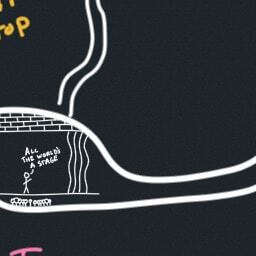 TOP
ALL
THE WORLD'S
A STAGE